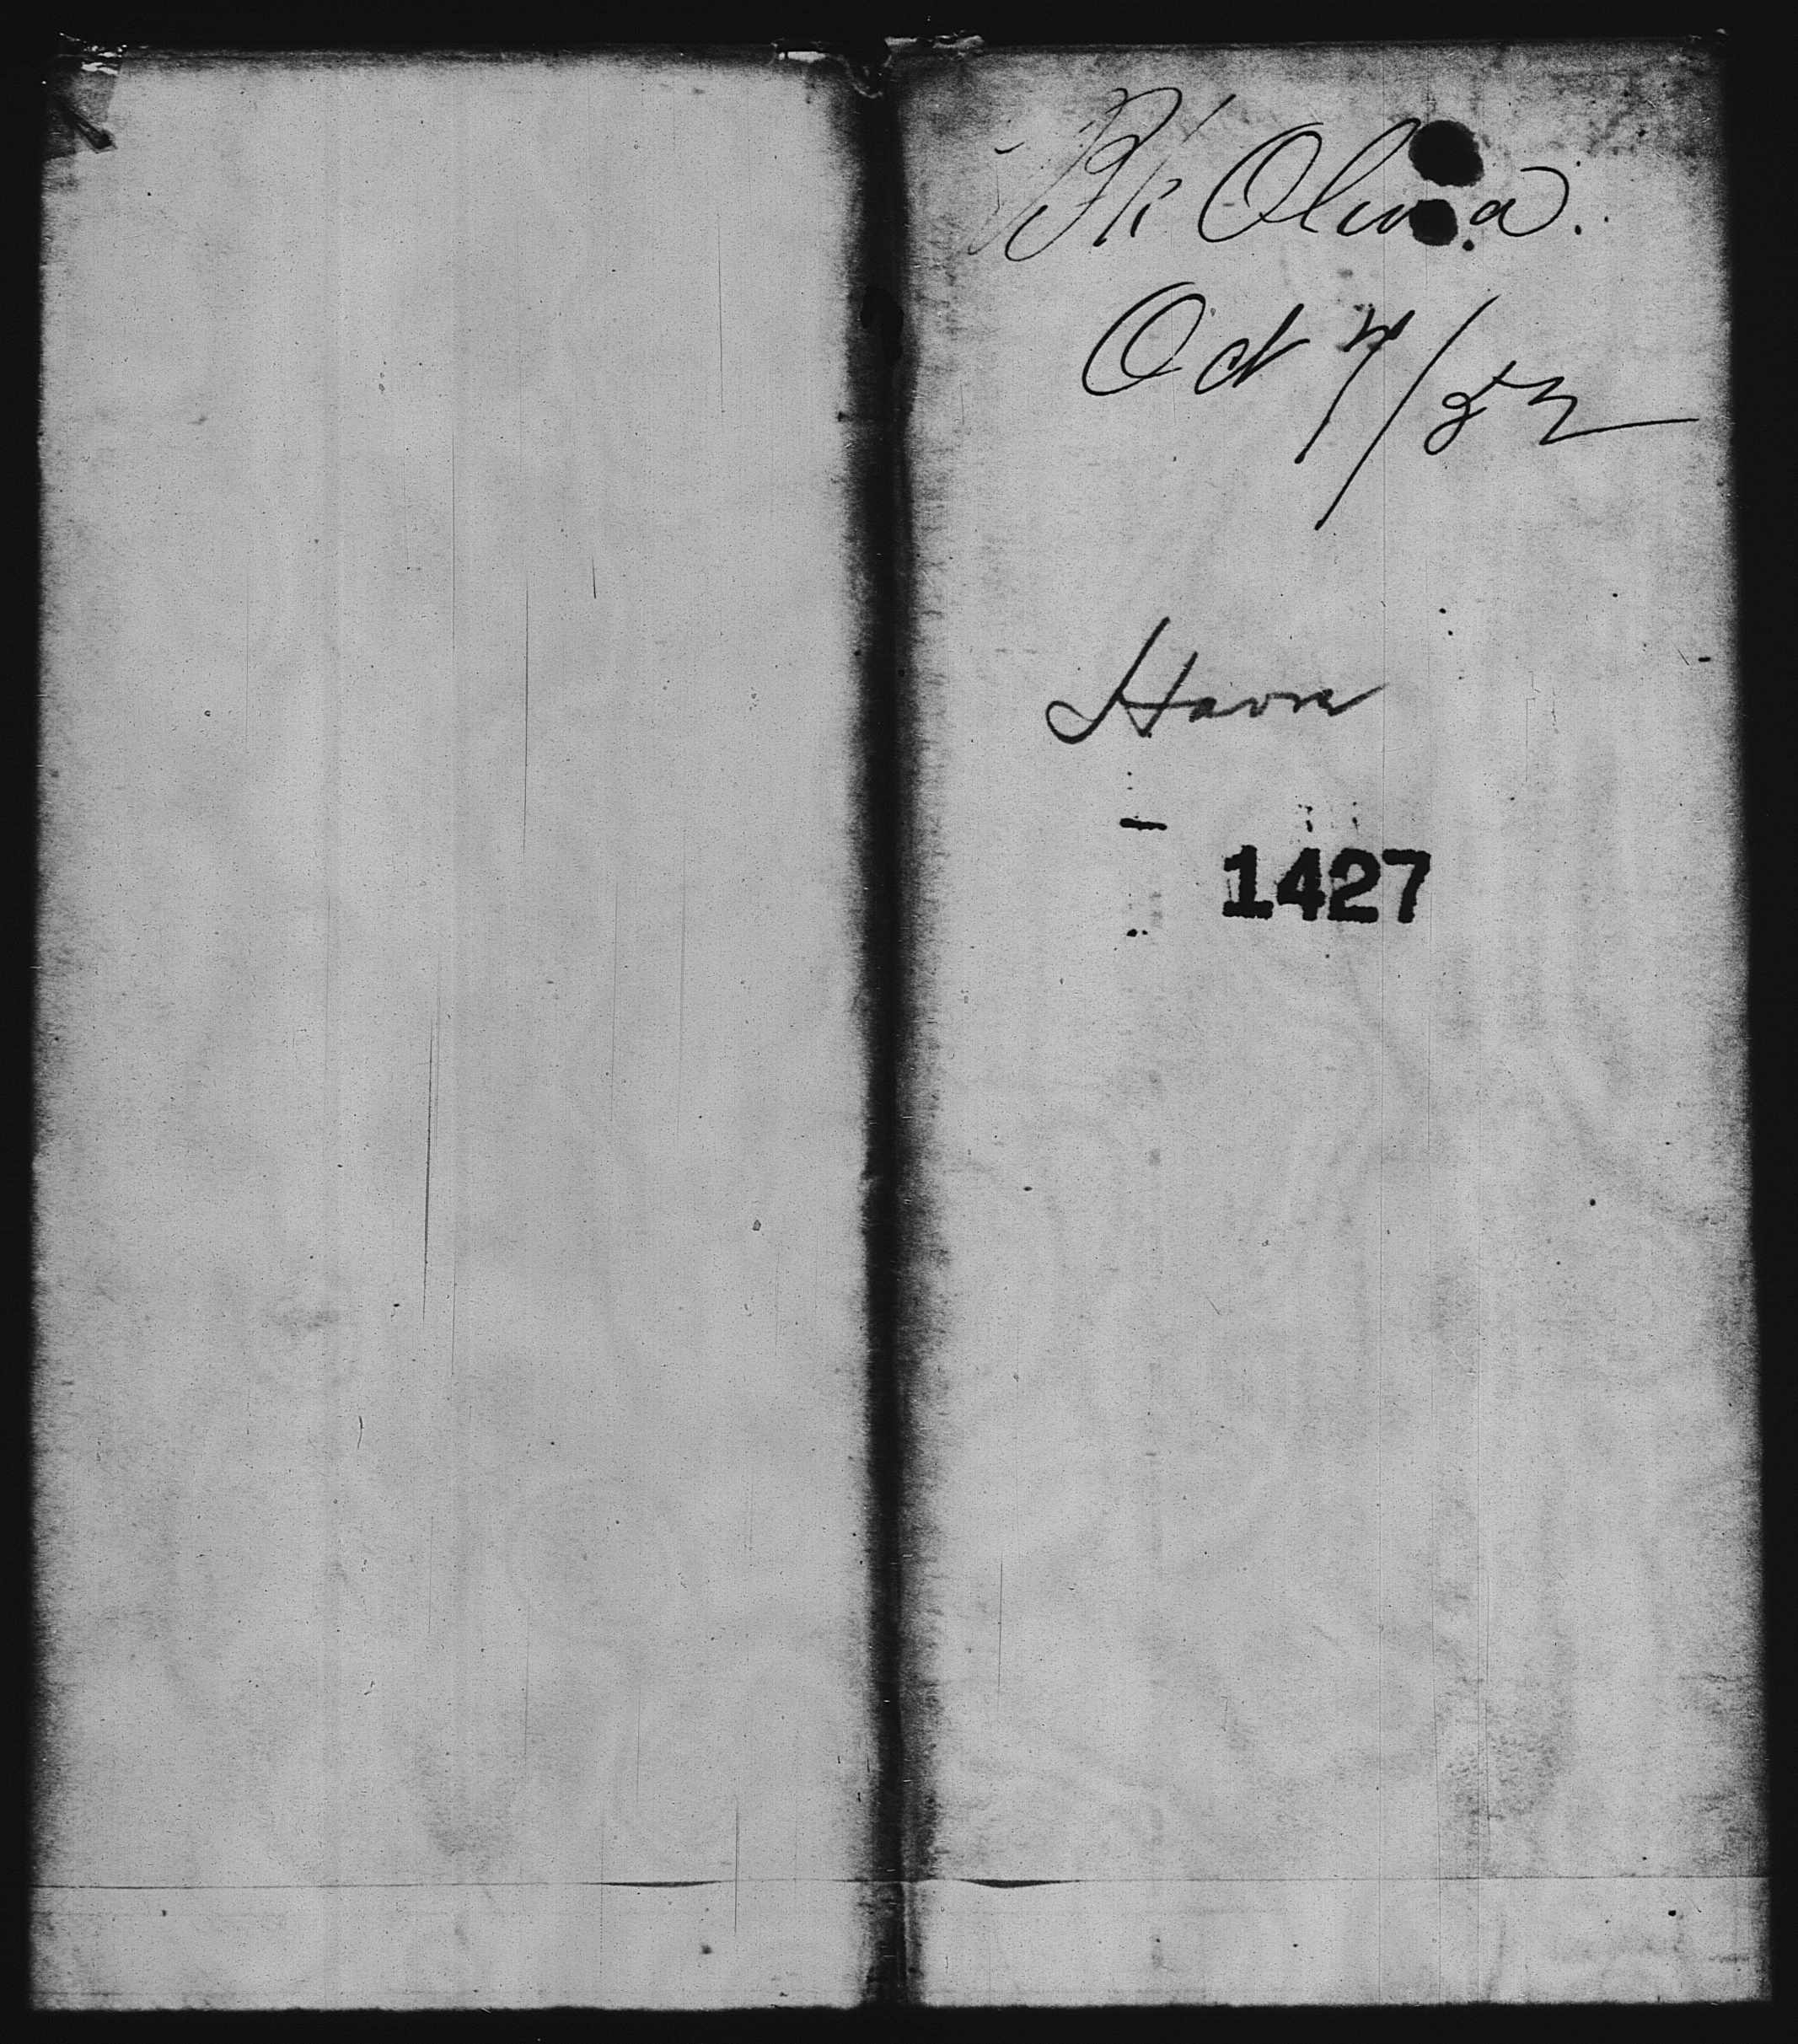 Bk Olivia.
Oct 7/52
Havre
1427